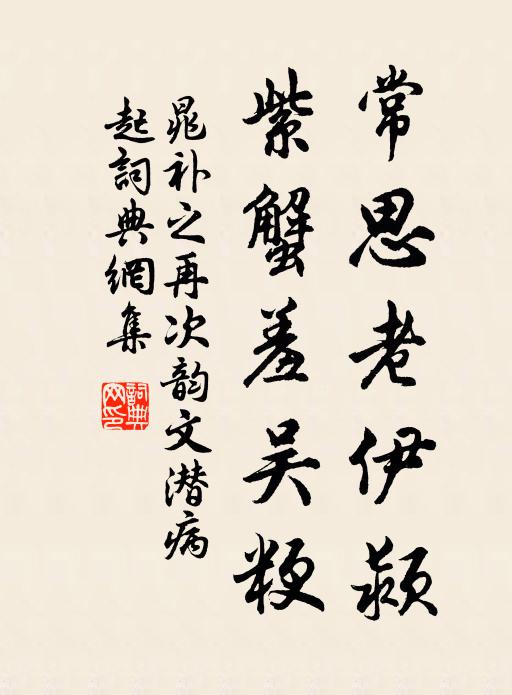 常思老伊颍
紫蟹羞吴粳
晁补之再次韵文潜病
起詞典網集
詞典網印